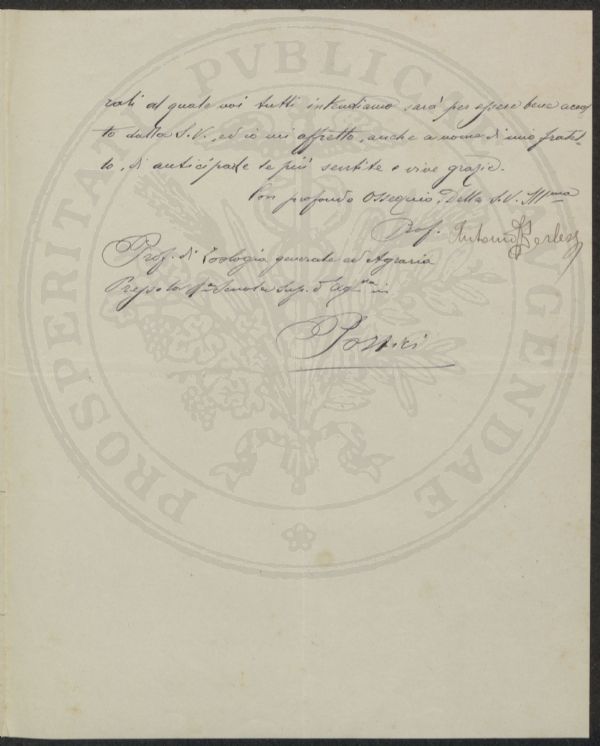 PROSPERITATI PVBLICAE AVGENDAE
rali al quale noi tutti intendiamo sarà per essere bene accol-
to dalla S.V., ed io mi affretto, anche a nome di mio fratel-
lo, di anticiparle le più sentite e vive grazie.
Con profondo Ossequio, Della S.V. Illma
Prof. Antonio Berlese
Prof. di Zoologia generale ed Agraria
Presso la Ra Scuola Sup. d'Agra in
Portici